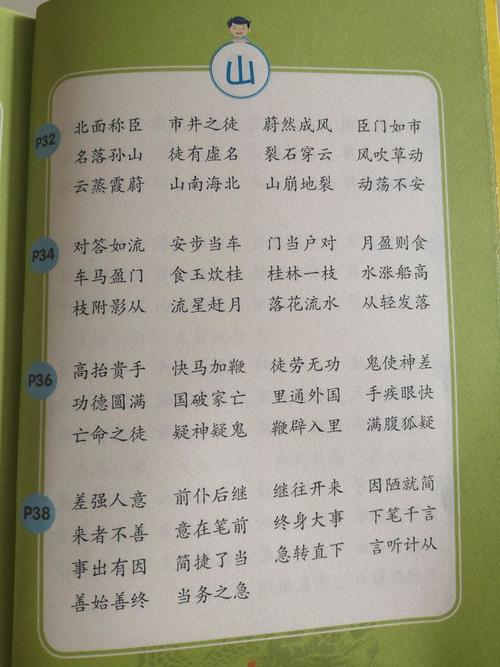 山
P32
北面称臣 市井之徒 蔚然成风 臣门如市
名落孙山 徒有虚名 裂石穿云 风吹草动
云蒸霞蔚 山南海北 山崩地裂 动荡不安
P34
对答如流 安步当车 门当户对 月盈则食
车马盈门 食玉炊桂 桂林一枝 水涨船高
枝附影从 流星赶月 落花流水 从轻发落
P36
高抬贵手 快马加鞭 徒劳无功 鬼使神差
功德圆满 国破家亡 里通外国 手疾眼快
亡命之徒 疑神疑鬼 鞭辟入里 满腹狐疑
P38
差强人意 前仆后继 继往开来 因陋就简
来者不善 意在笔前 终身大事 下笔千言
事出有因 简捷了当 急转直下 言听计从
善始善终 当务之急